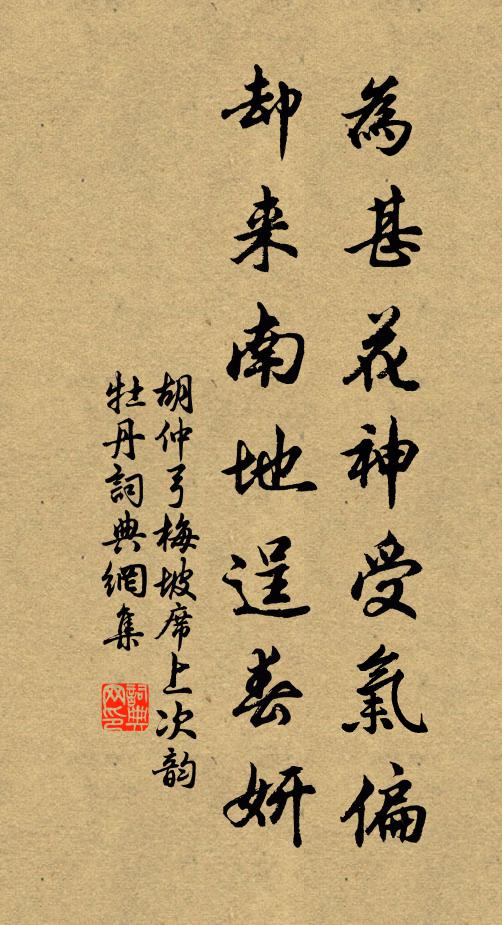 為甚花神受氣偏
却来南地逞春妍
胡仲弓梅坡席上次韵
牡丹詞典網集
詞典网印